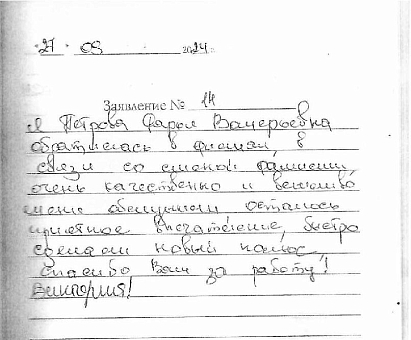 27 . 08 2024 г.
Заявление № 14
Я Петрова Дарья Валерьевна
обратилась в филиал, в
связи со сменой фамилии,
очень качественно и вежливо
меня обслужили осталось
приятное впечатление, быстро
сделали новый полис,
Спасибо Вам за работу!
Виктория!